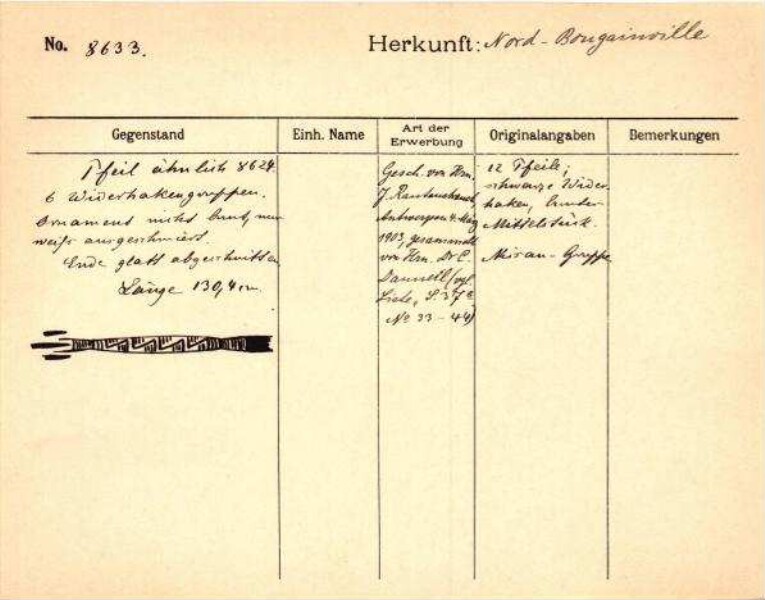 No. 8633.
Herkunft: Nord-Bougainville
Gegenstand
Einh. Name
Art der Erwerbung
Originalangaben
Bemerkungen
Pfeil ähnlich 8624.
6 Widerhakengruppen.
Ornament nicht bunt, nur
weiß ausgeschmiert.
Ende glatt abgeschnitten
Länge 130,4 cm.
Gesch. von Hrn.
J. Rautenstrauch,
Antwerpen 4. März
1903, gesammelt
von Hrn. Dr C.
Danneil (vgl.
Liste, S. 37
No 33 - 44)
12 Pfeile;
schwarze Wider
haken, bunter
Mittelstück.
Gruppe